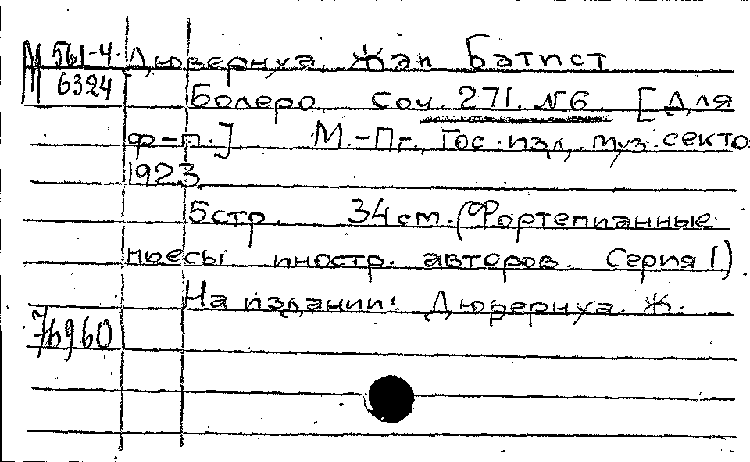 М 561-4 Дювернуа, Жан Батист
6324 Болеро. Соч. 271. №6. [Для
ф-п.] М.-Пг., Гос. изд., муз. секто
1923.
5 стр. 34 см. (Фортепианные
пьесы иностр. авторов. Серия I).
На издании: Дювернуа, Ж.
76960